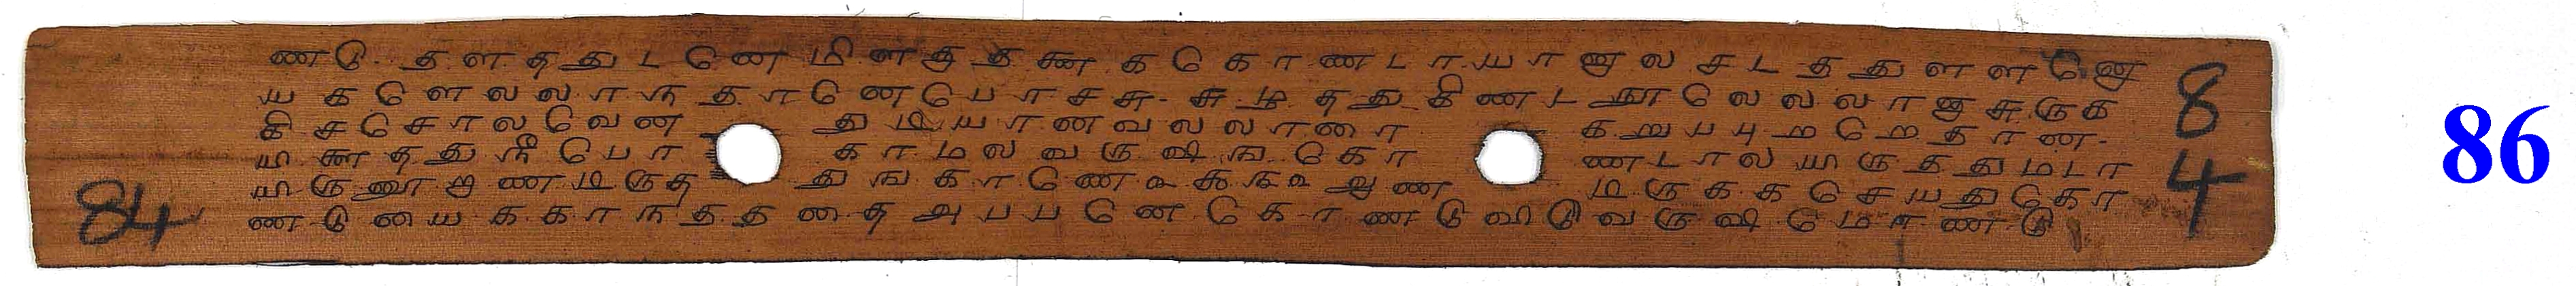 ண டு த ள த து ட னெ மி ள கு த க ண க கொ ண டா யா னு ல ச ட த து ள ள னெ
ய க ளெ ல லா ந தா னெ பொ ச சு சு ழ த து கி ண ட தூ லெ ல லா ஞ சு ரு க
கி ச சொ ல வெ ண து மி யா ண வ ல லா ரை க று ப பு ற றெ தா ண
யி ண த து நீ போ கா ம ல வ ரு ஷ ங கொ ண டா ல யி ரு த து ம டா
யி ரு னூ ற ண மி ரு த து ங கா ணெ உ சு ங உ ஆ ண மி ரு க க செ ய து கொ
ண டு யை க கா ந த த தை அ ப ப னெ கொ ண டு வி டு வ ரு ஷ மொ ண டு
84
84
86